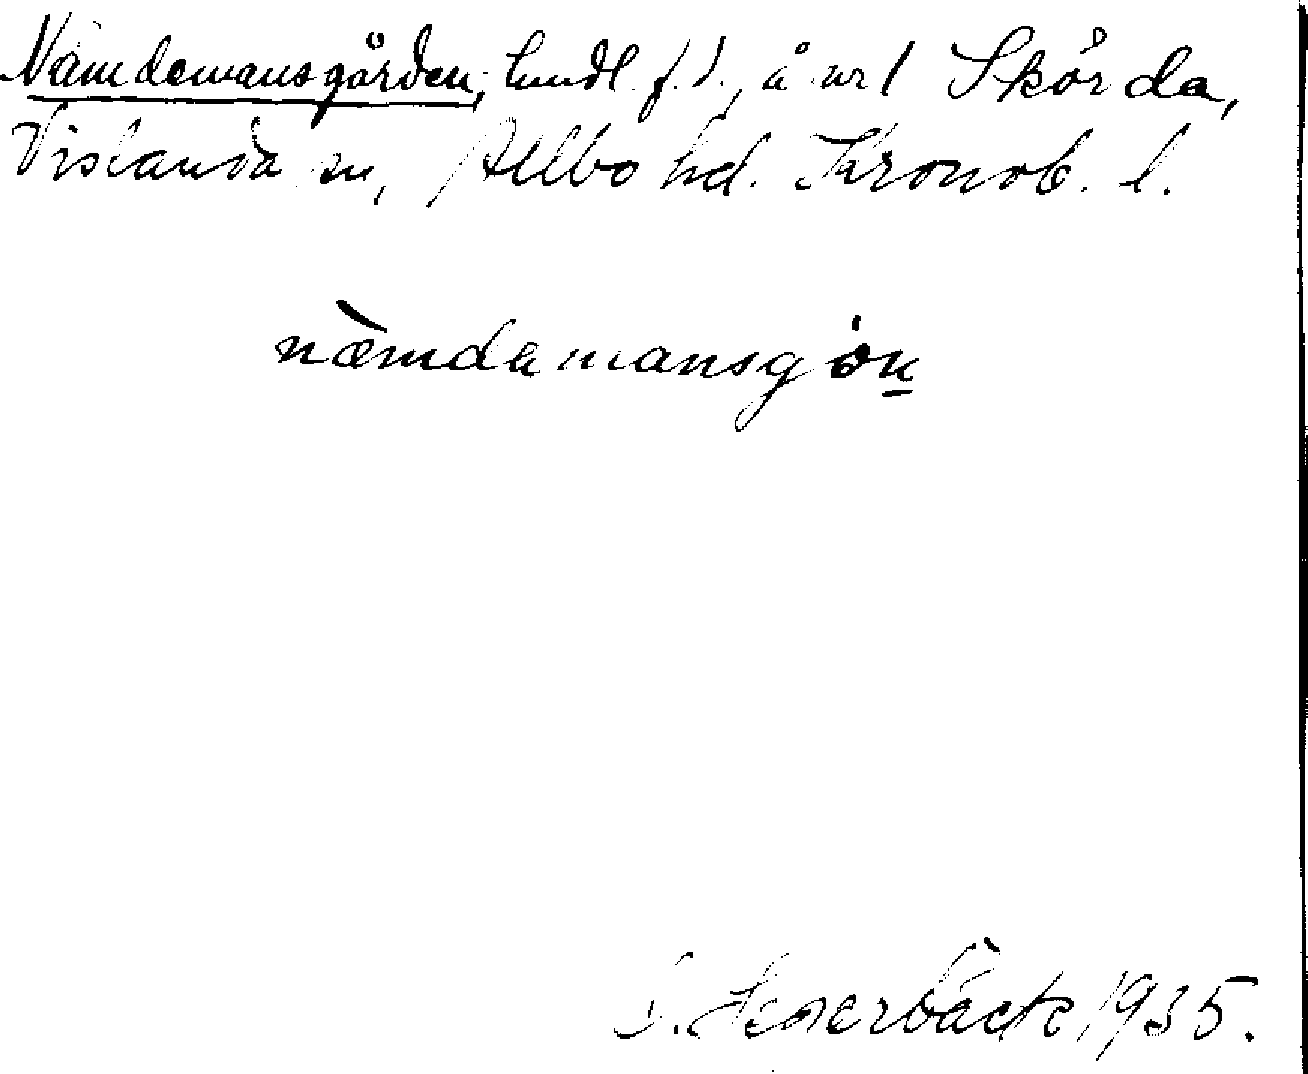 Nämdemansgården, lmdl. f.d., å nr 1 Skörda,
Vislanda sn, Allbo hd. Kronob. l.
næmdamansgón
1935.